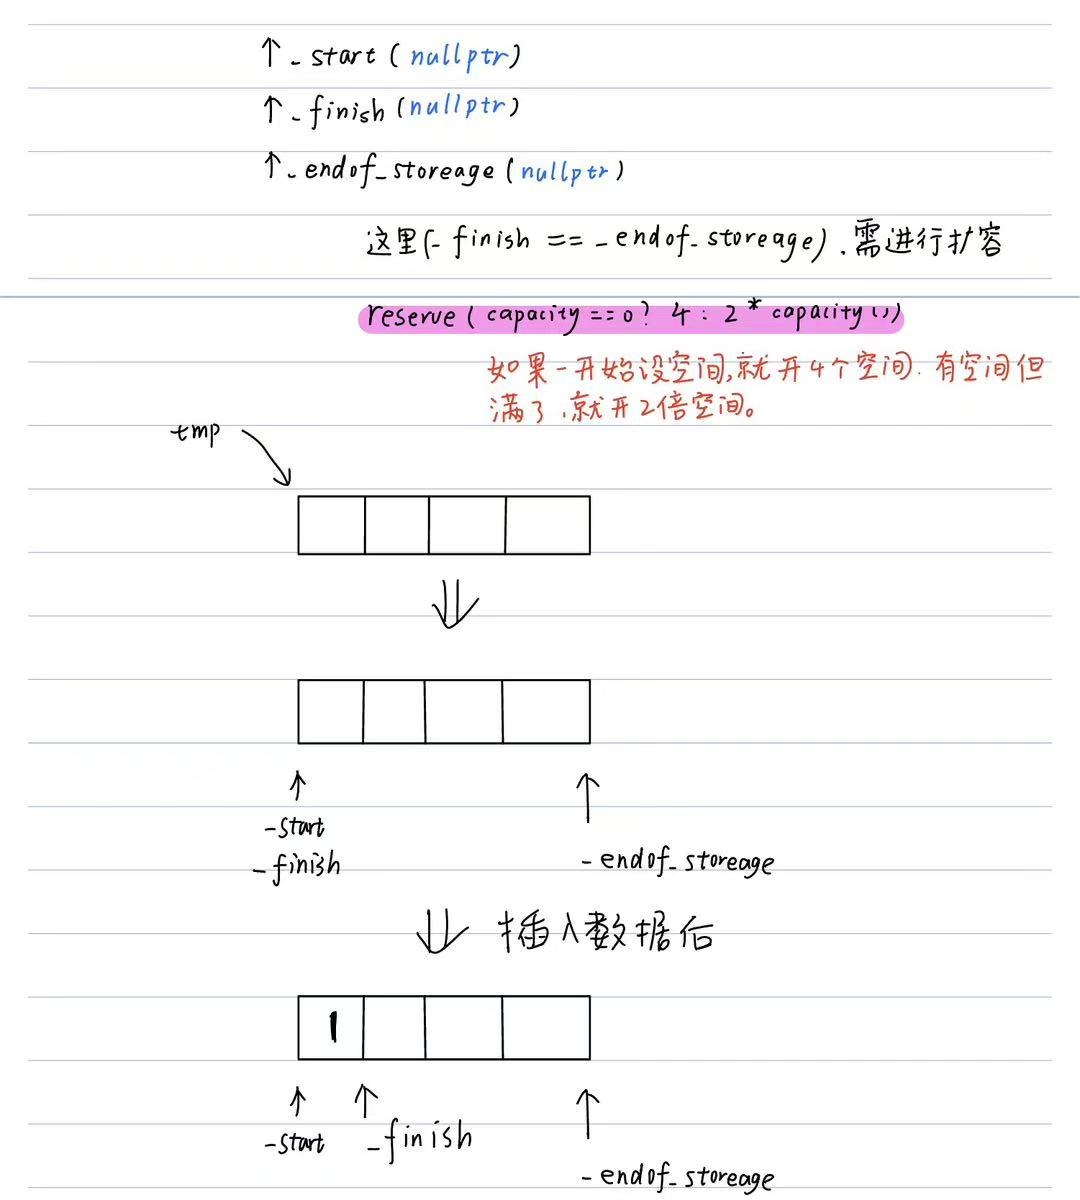 ↑_start(nullptr)
↑_finish(nullptr)
↑_endof_storeage(nullptr)
这里(_finish == _endof_storeage).需进行扩容
reserve(capacity==0? 4: 2*capacity())
如果一开始没空间,就开4个空间.有空间但
满了.就开2倍空间。
tmp
_start
_finish
_endof_storeage
插入数据后
1
_start
_finish
_endof_storeage